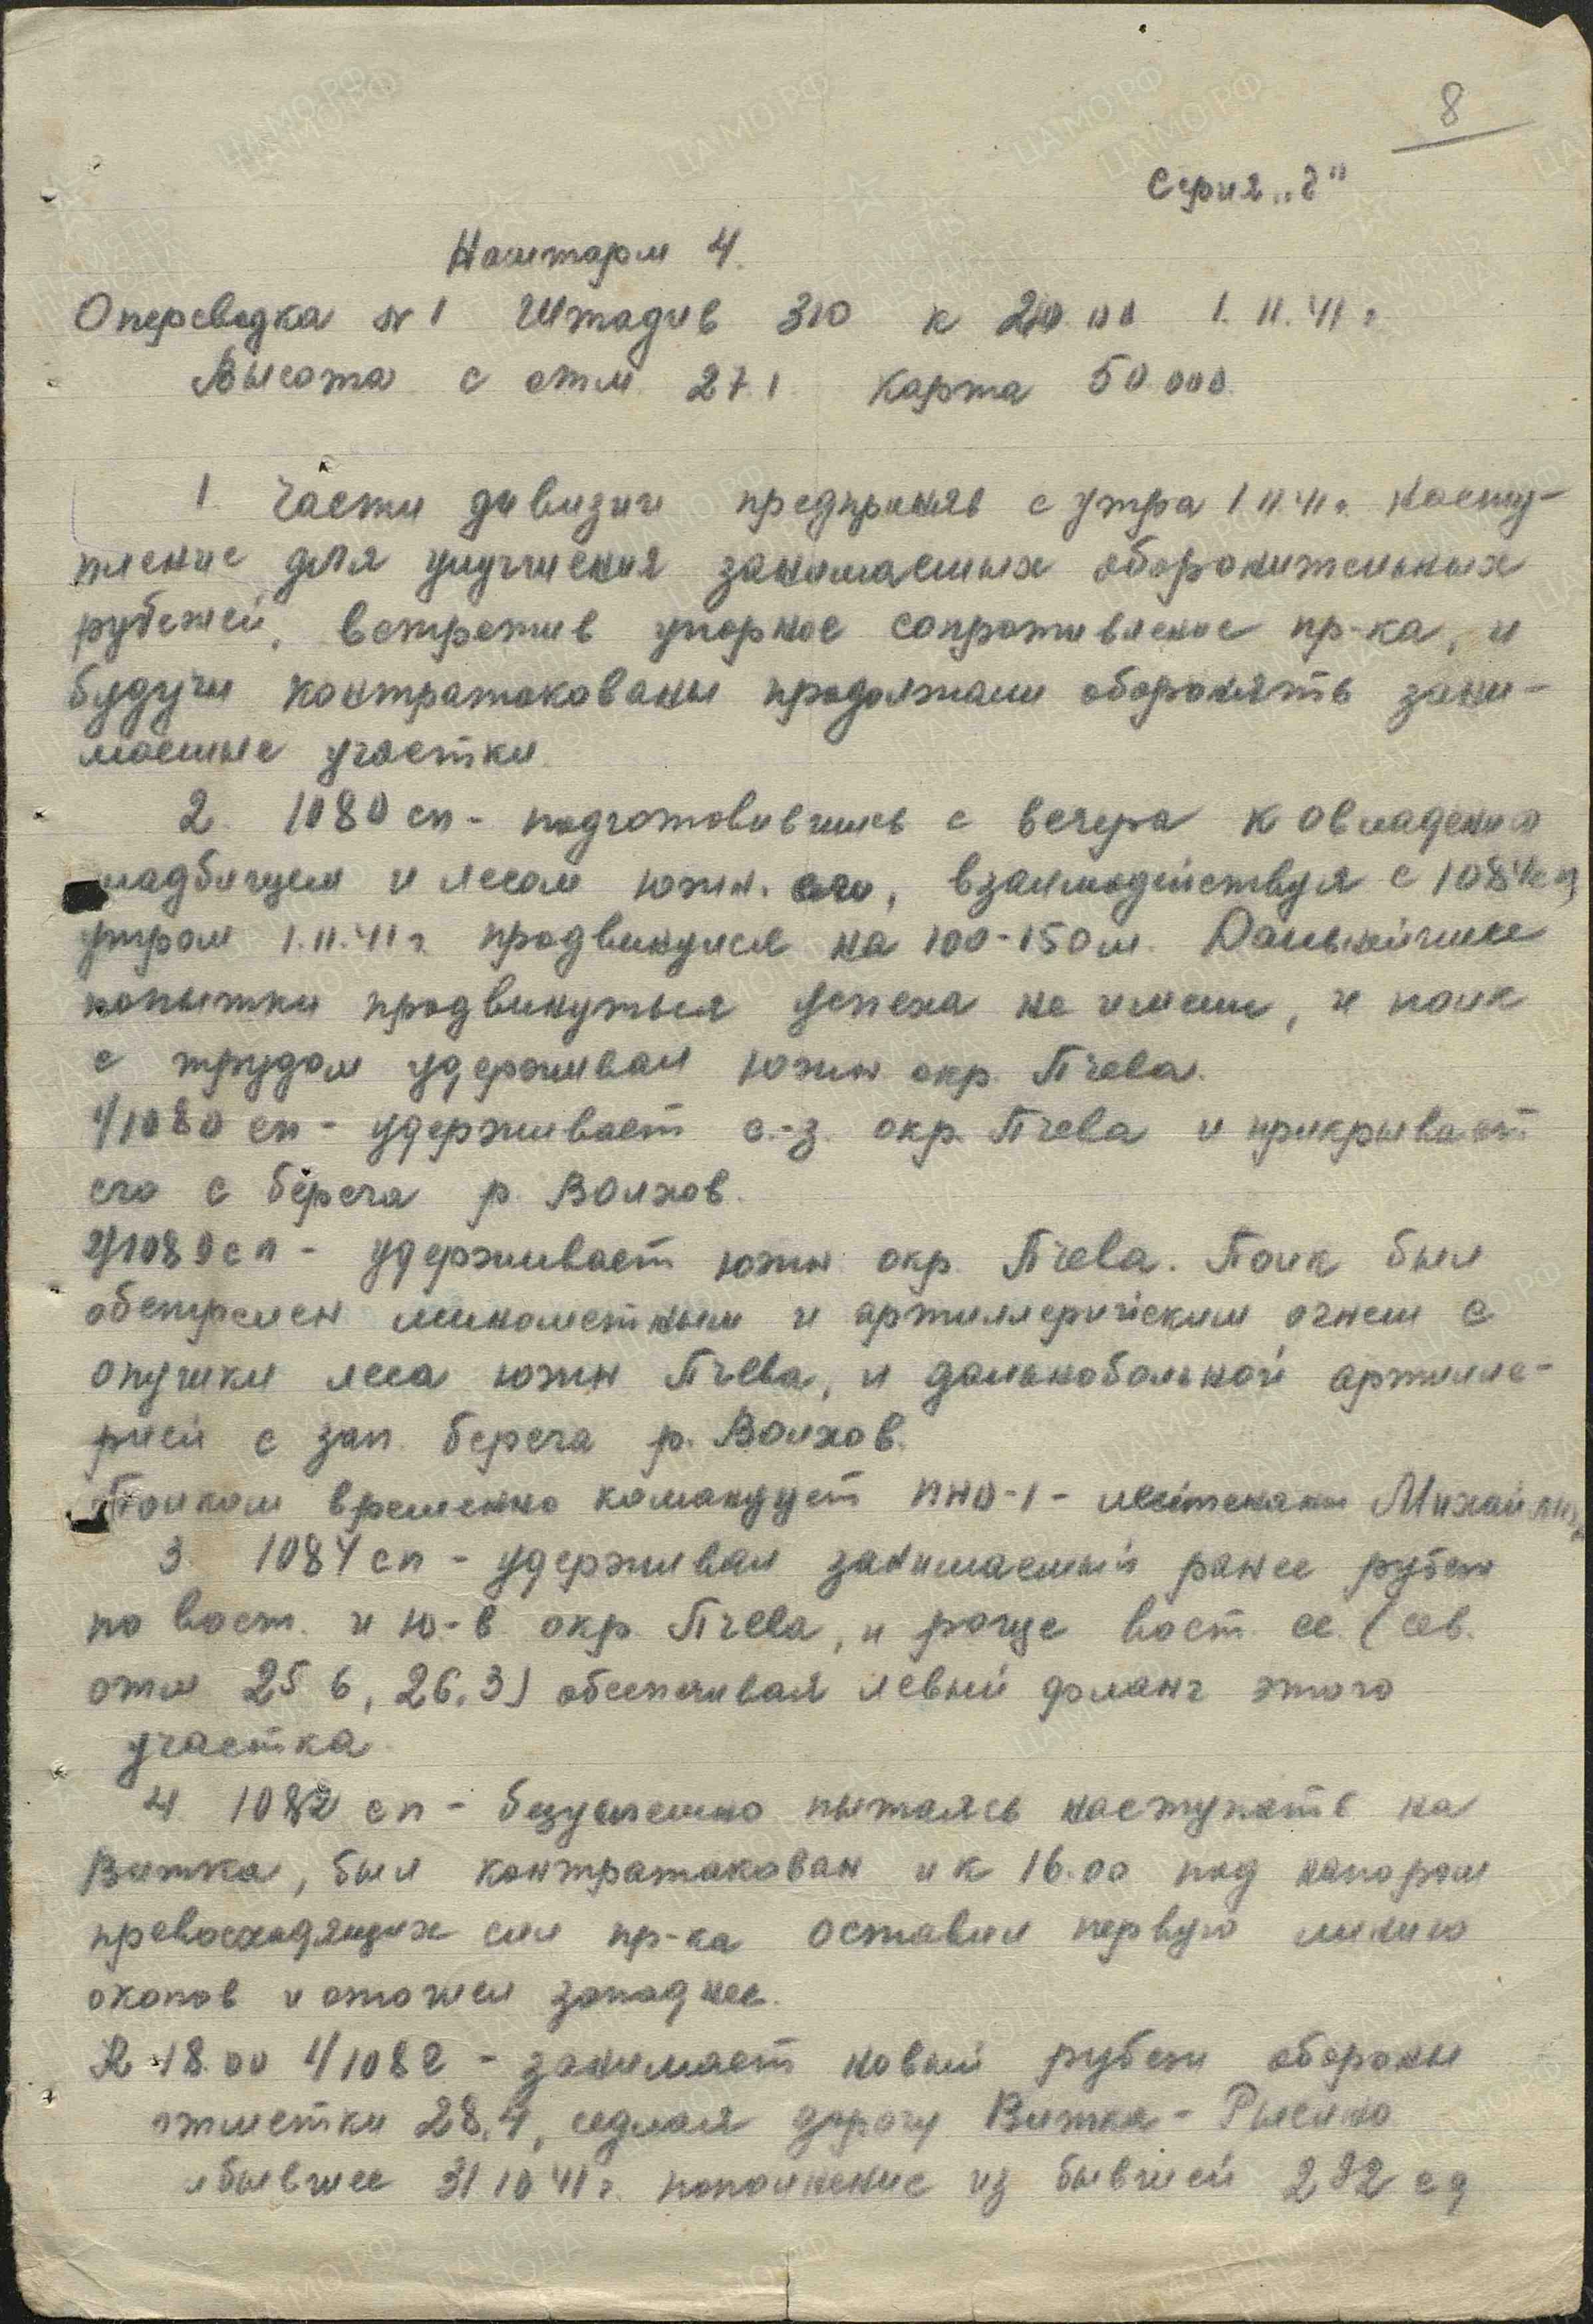 8
Серия „Г"
Наштарм 4.
Оперсводка № 1 Штадив 310 к 20.00 1.11.41 г.
Высота с отм. 27.1. Карта 50.000.
1. Части дивизии предприняв с утра 1.11.41 г. насту-
пление для улучшения занимаемых оборонительных
рубежей, встретив упорное сопротивление пр-ка, и
будучи контратакованы продолжали оборонять зани-
маемые участки.
2. 1080 сп - подготовившись с вечера к овладению
кладбищем и лесом южн. его, взаимодействуя с 1084 сп
утром 1.11.41 г. продвинулся на 100-150 м. Дальнейшие
попытки продвинуться успеха не имели, и полк
с трудом удерживал южн. окр. Пчева.
1/1080 сп - удерживает с.-з. окр. Пчева и прикрывает
его с берега р. Волхов.
2/1080 сп - удерживает южн. окр. Пчева. Полк был
обстрелен минометным и артиллерийским огнем с
опушки леса южн. Пчева, и дальнобойной артилле-
рией с зап. берега р. Волхов.
Полком временно командует ПНО-1 - лейтенант
3. 1084 сп - удерживал занимаемый ранее рубеж
по вост. и ю.-в. окр. Пчева, и роще вост. ее. (сев.
отм 25.6, 26.3) обеспечивая левый фланг этого
участка.
4. 1082 сп - безуспешно пытаясь наступать на
Витка, был контратакован и к 16.00 под напором
превосходящих сил пр-ка оставил первую линию
окопов и отошел западнее.
К 18.00 1/1082 - занимает новый рубеж обороны
отметки 28.4, седлая дорогу Витка - Рысино
прибывшее 31.10.41 г. пополнение из бывшей 292 сд